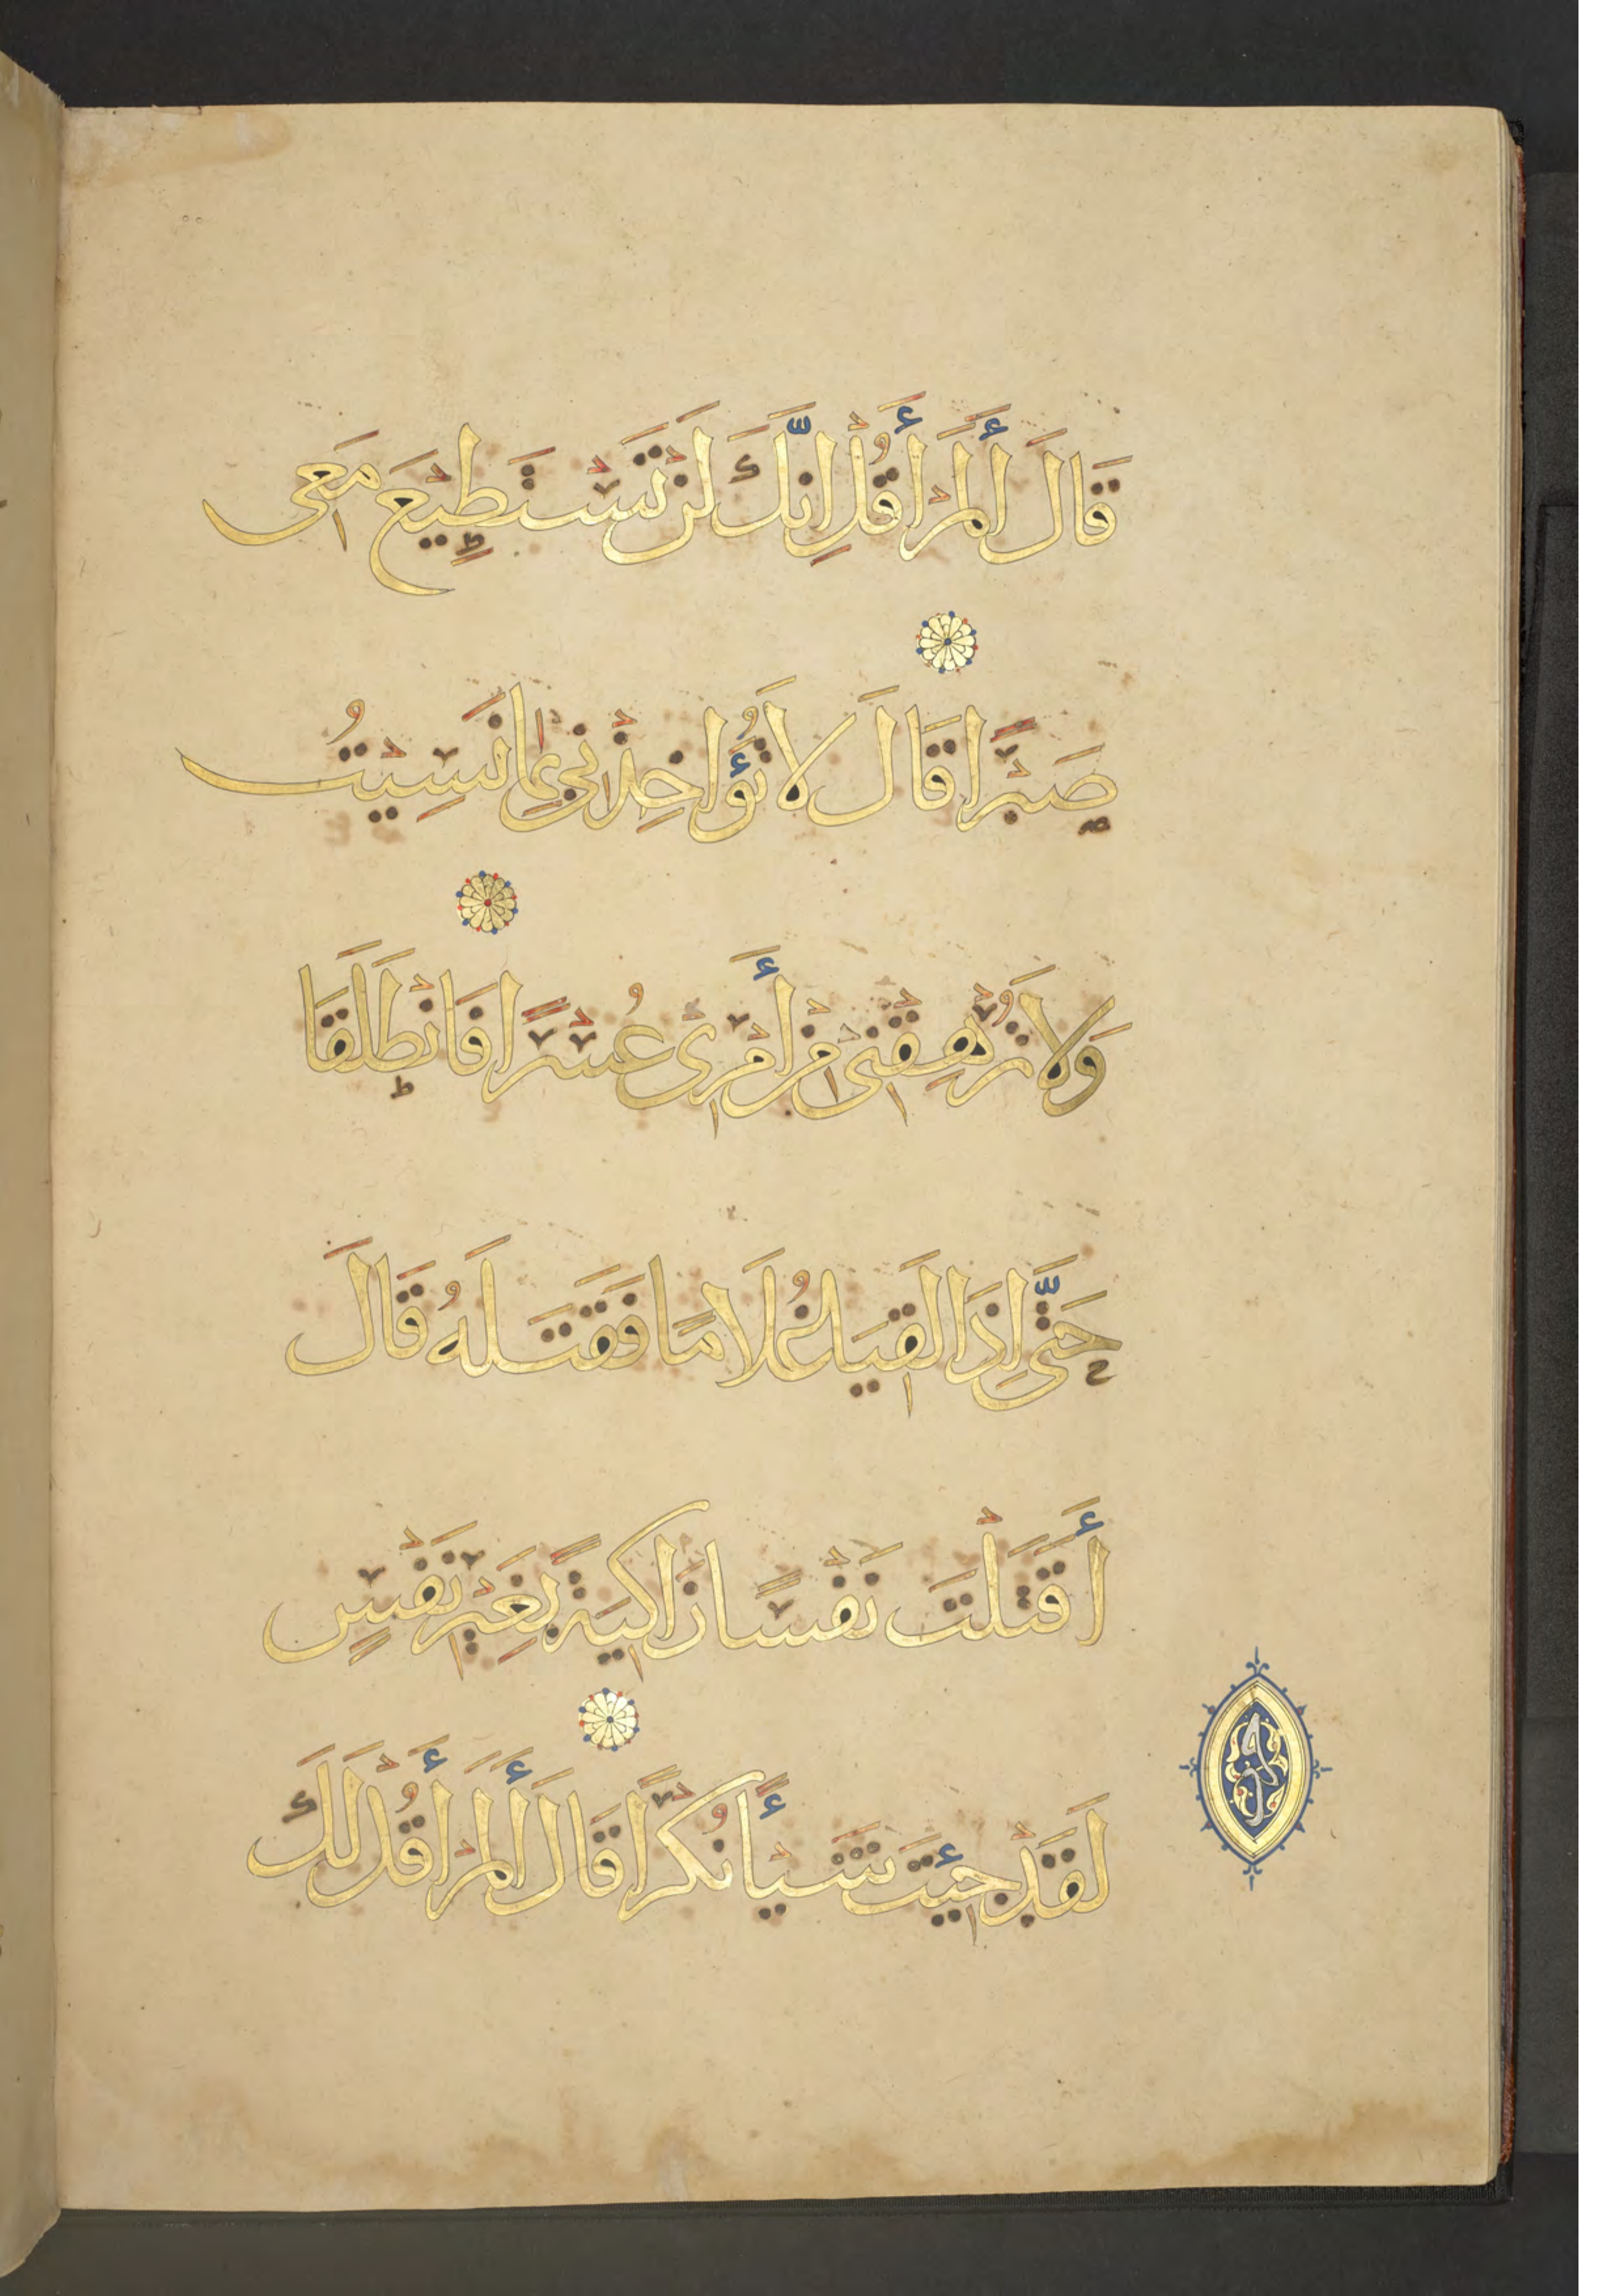 قَالَ أَلَمْ أَقُلْ إِنَّكَ لَنْ تَسْتَطِيْعَ مَعِى
صَبْرًا قَالَ لَا تُؤَاخِذْنِي بِمَا نَسِيْتُ
وَلَا تُرْهِقْنِى مِنْ أَمْرِى عُسْرًا فَانْطَلَقَا
حَتَّى إِذَا لَقِيَا غُلَامًا فَقَتَلَهُ قَالَ
أَقَتَلْتَ نَفْسًا زَاكِيَةً بِغَيْرِ نَفْسٍ
لَقَدْ جِئْتَ شَيْأً نُكْرًا قَالَ أَلَمْ أَقُلْ لَكَ